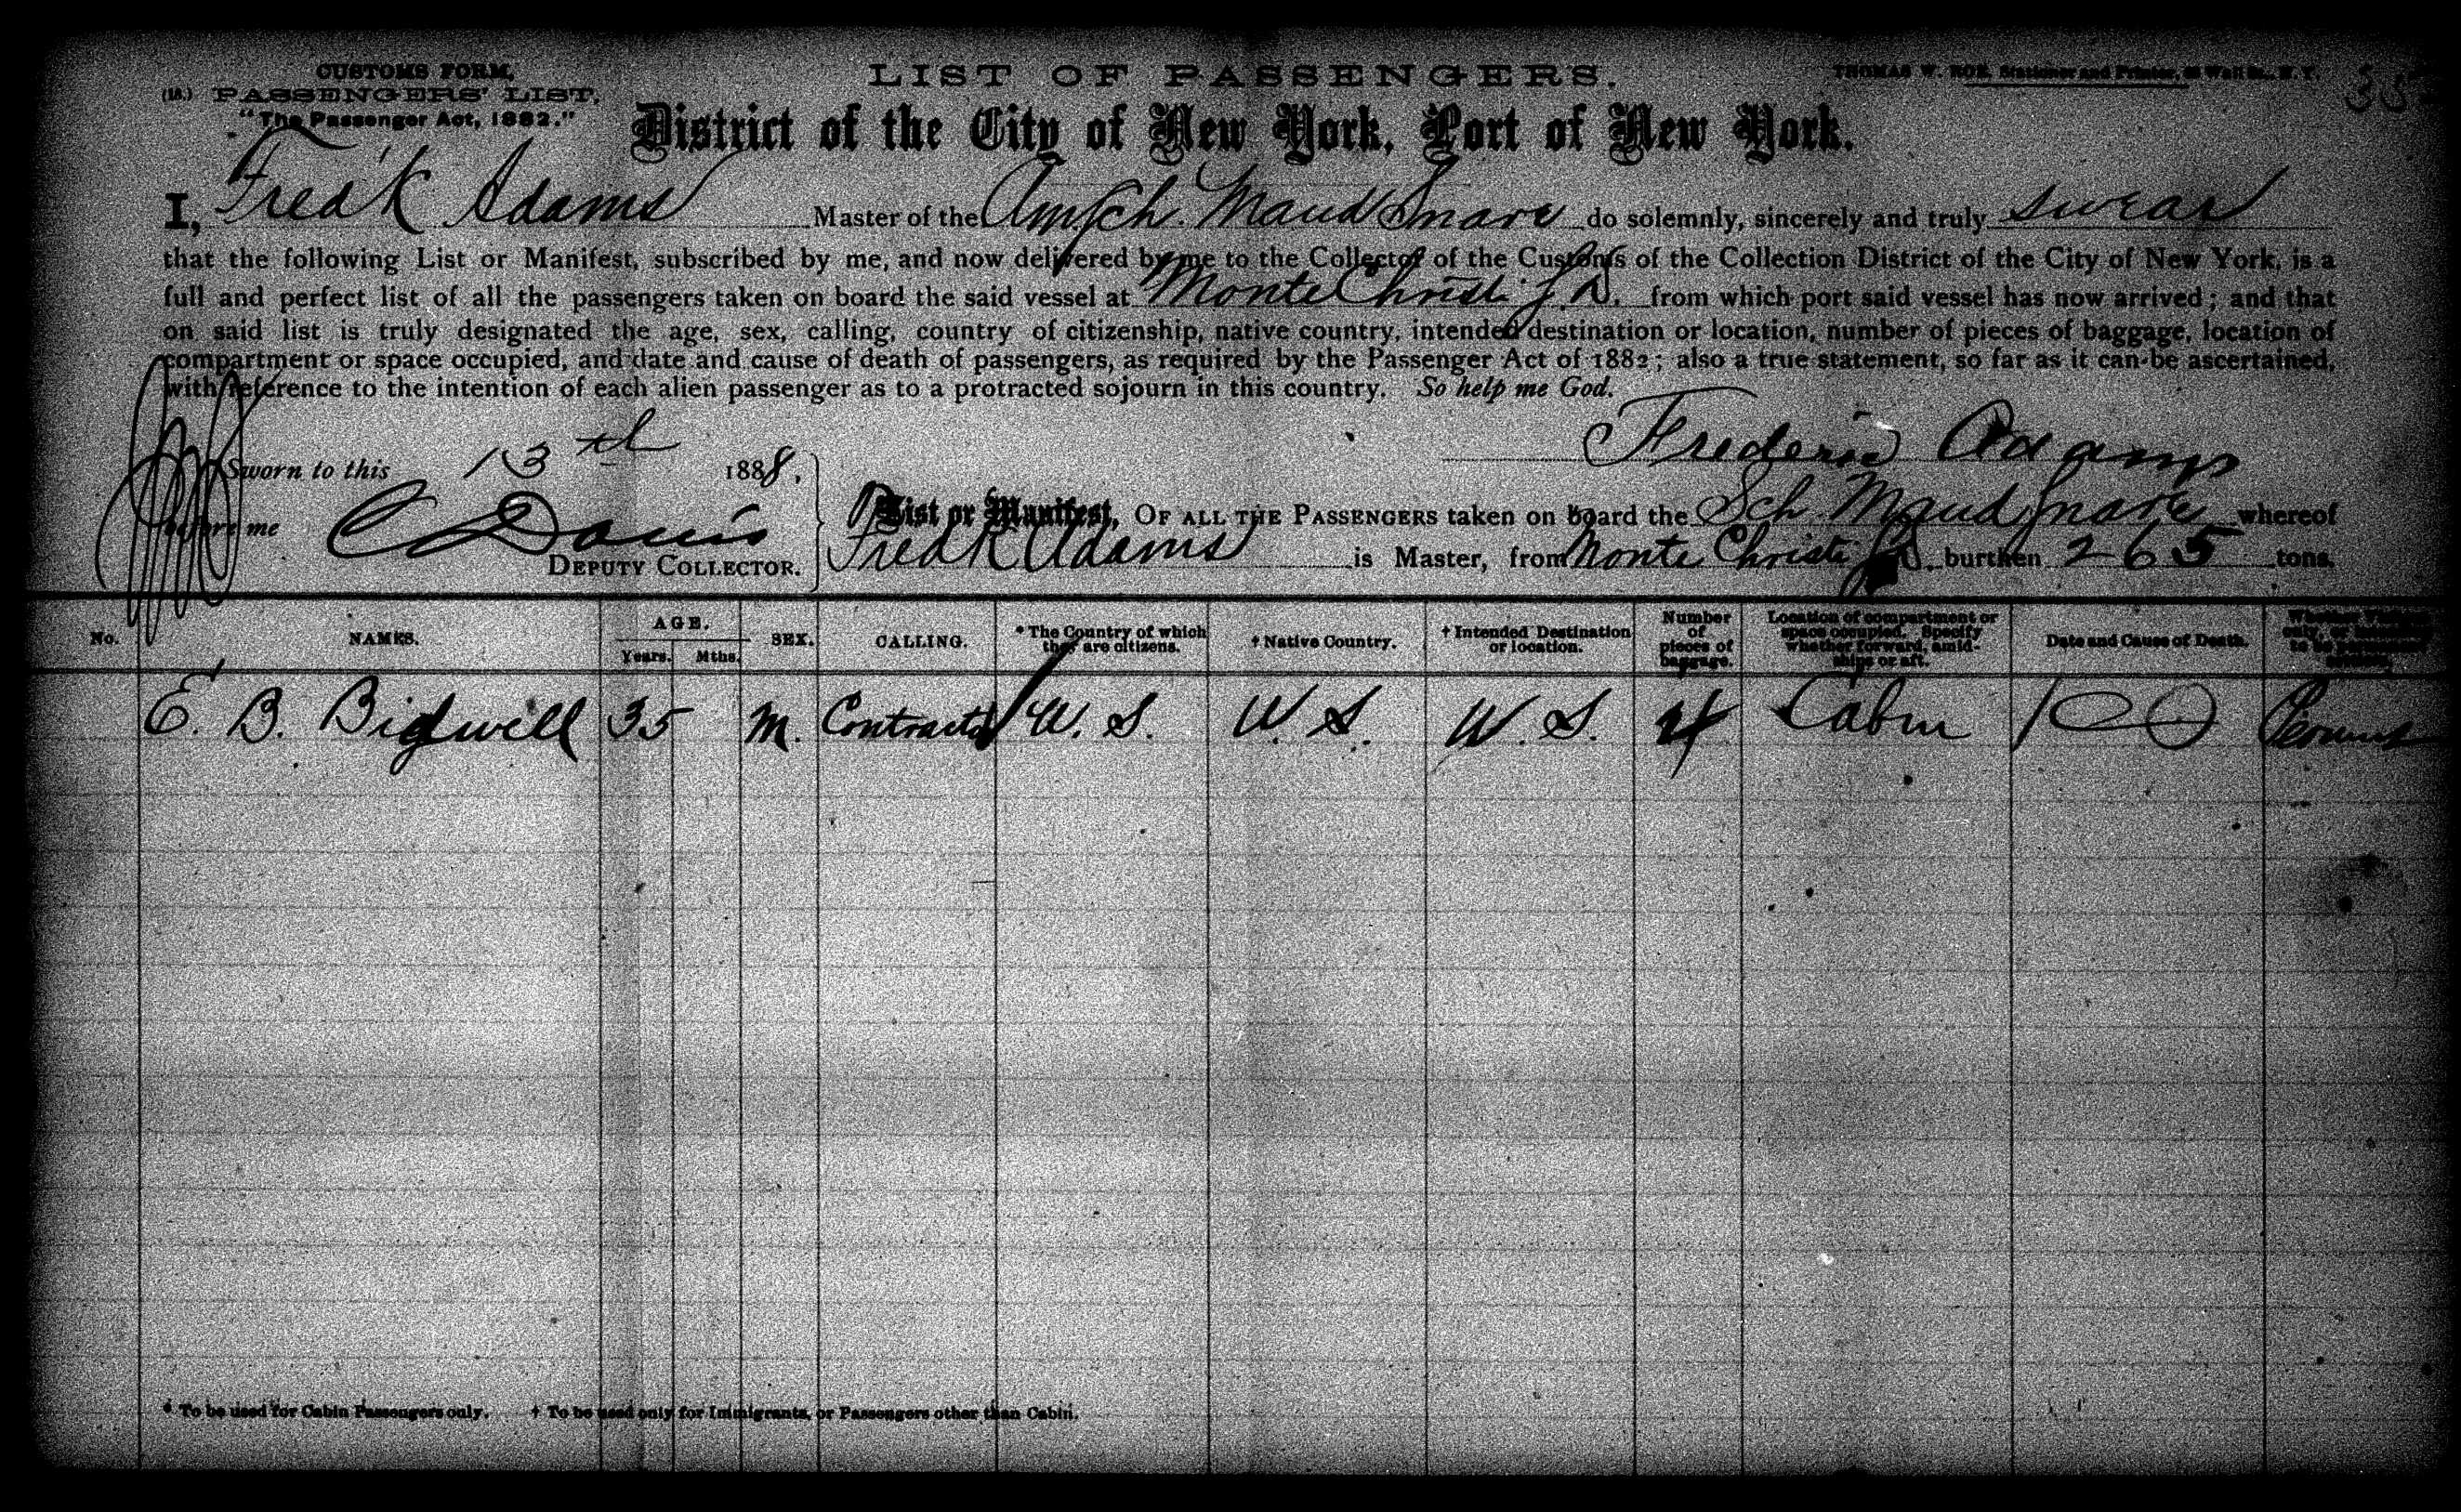 CUSTOMS FORM,
(18.) PASSENGERS' LIST,
"The Passenger Act, 1882."
LIST OF PASSENGERS.
THOMAS W. ROE, Stationer and Printer, Wall St., N. Y.
District of the City of New York, Port of New York.
I, Fred'k Adams Master of the Am Sch. Maud Snare do solemnly, sincerely and truly swear
that the following List or Manifest, subscribed by me, and now delivered by me to the Collector of the Customs of the Collection District of the City of New York, is a
full and perfect list of all the passengers taken on board the said vessel at Monte Christi S. D. from which port said vessel has now arrived; and that
on said list is truly designated the age, sex, calling, country of citizenship, native country, intended destination or location, number of pieces of baggage, location of
compartment or space occupied, and date and cause of death of passengers, as required by the Passenger Act of 1882; also a true statement, so far as it can be ascertained,
with reference to the intention of each alien passenger as to a protracted sojourn in this country. So help me God.
Frederic Adams
Sworn to this 13th 1888,
before me C Davis
DEPUTY COLLECTOR.
List or Manifest, OF ALL THE PASSENGERS taken on board the Sch. Maud Snare whereof
Fredk Adams is Master, from Monte Christi S D. burthen 265 tons.
No. NAMES. AGE. Years. Mths. SEX. CALLING. * The Country of which they are citizens. † Native Country. † Intended Destination or location. Number of pieces of baggage. Location of compartment or space occupied. Specify whether forward, amidships or aft. Date and Cause of Death.
E. B. Bidwell 35 M. Contractor U. S. U. S. U. S. 4 Cabin
* To be used for Cabin Passengers only. † To be used only for Immigrants, or Passengers other than Cabin.